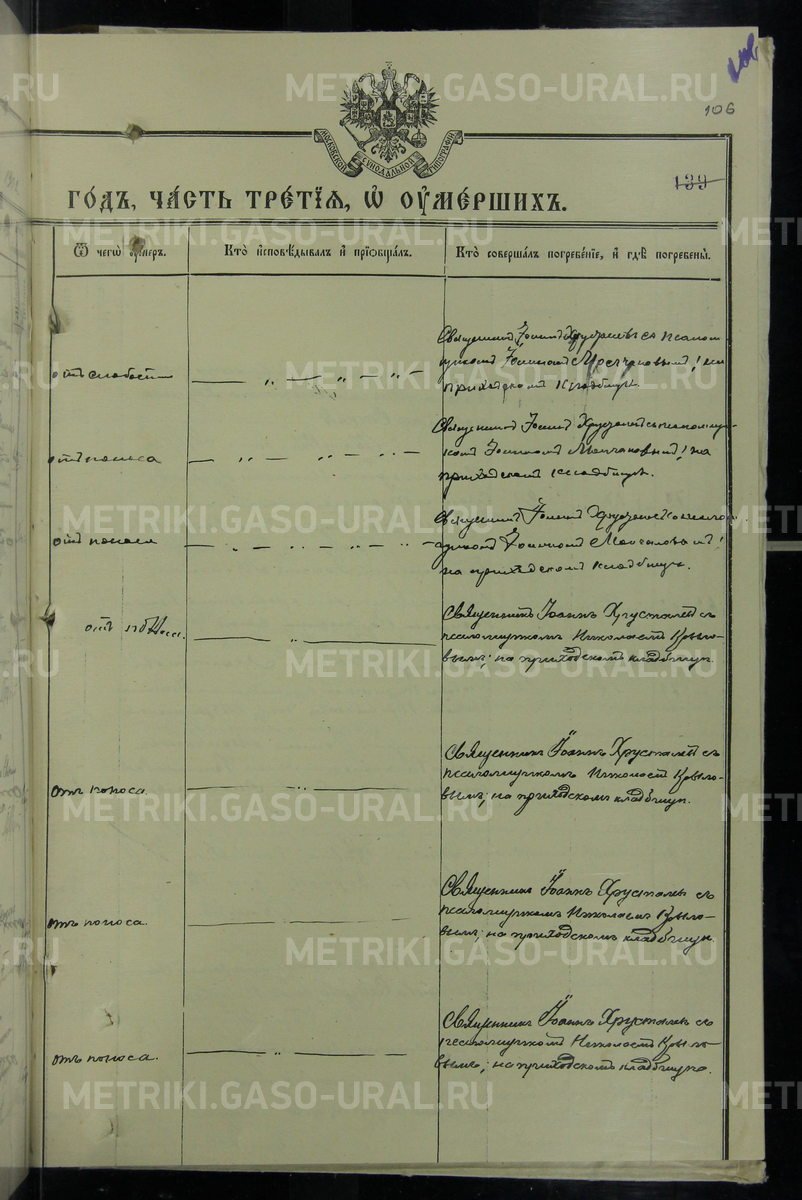 METRIKI.GASO-URAL.RU
106
МОСКОВСКОЙ СѴНОДАЛЬНОЙ ТИПОГРАФІИ
139
ГО́ДЪ, ЧА́СТЬ ТРЕ́ТІѦ, Ѡ҆ ОУ҆МЕ́РШИХЪ.
Ѿ чегѡ̀ ᲂу҆́меръ.
Кто̀ и҆сповѣ́дывалъ и҆ прїѡбща́лъ.
Кто̀ соверша́лъ погребе́нїе, и҆ гдѣ̀ погребены̀.
отъ слабости
Священникъ Іоаннъ Хрусталевъ съ псалом
щикомъ Іоанномъ на
приходскомъ кладбищѣ.
отъ поноса
Священникъ Іоаннъ съ псаломщи-
комъ Іоанномъ на
приходскомъ кладбищѣ.
отъ
Священникъ Іоаннъ съ псалом
щикомъ Іоанномъ
на приходскомъ кладбищѣ.
отъ
Священникъ Іоаннъ Хрусталевъ съ
псаломщикомъ Николаемъ Крыло-
вымъ; на приходскомъ кладбищѣ.
отъ поноса.
Священникъ Іоаннъ Хрусталевъ съ
псаломщикомъ Николаемъ Крыло-
вымъ; на приходскомъ кладбищѣ.
отъ поноса.
Священникъ Іоаннъ Хрусталевъ съ
псаломщикомъ Николаемъ Крыло-
вымъ; на приходскомъ кладбищѣ.
отъ поноса.
Священникъ Іоаннъ Хрусталевъ съ
псаломщикомъ Николаемъ Крыло-
вымъ; на приходскомъ кладбищѣ.